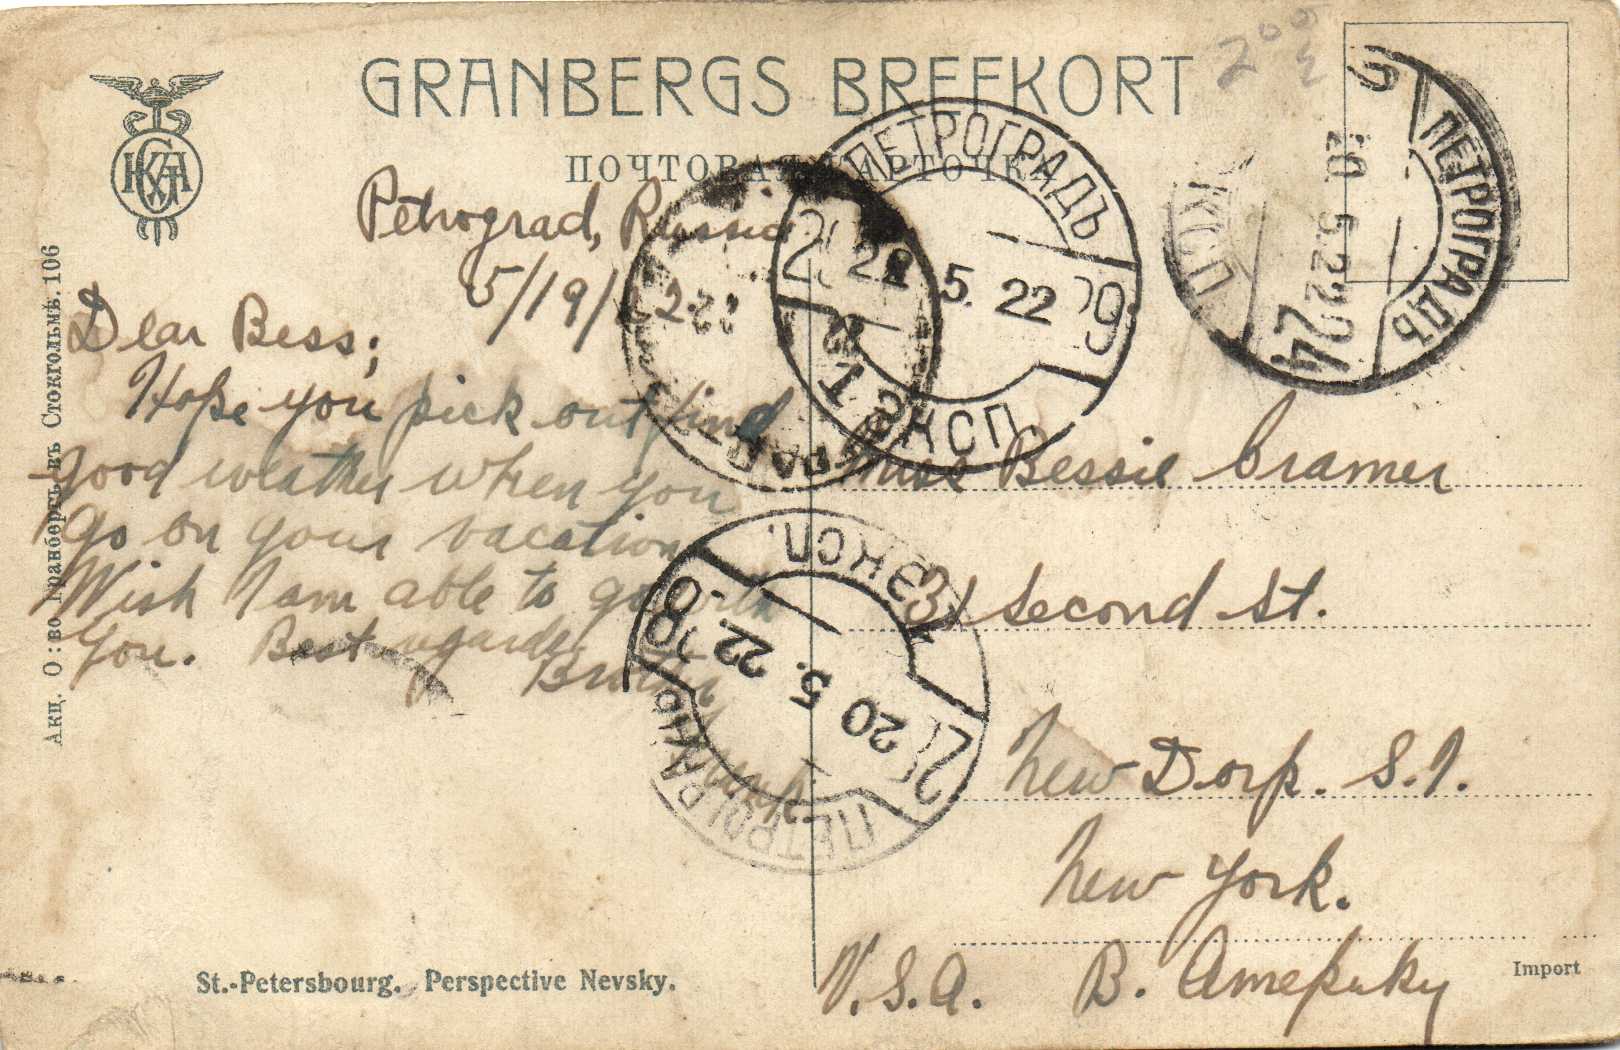 GRANBERGS BREFKORT
ПОЧТОВАЯ КАРТОЧКА
Petrograd, Russia
5/19/22
Dear Bess;
Hope you pick out find
good weather when you
go on your vacation
Wish I am able to go with
you. Best regards,
Brother
Miss Bessie Cramer
31 Second St.
New Dorp. S.I.
New York.
U.S.A. В. Америку
St.-Petersbourg. Perspective Nevsky.
Import
Акц. О:во Гранбергъ въ Стокгольмѣ. 106
ПЕТРОГРАДЪ
5. 22
ЭКСП.
ПЕТРОГРАДЪ
20. 5. 22
24
ЭКСП.
20 5. 22. 18
ПЕТРОГРАДЪ
200